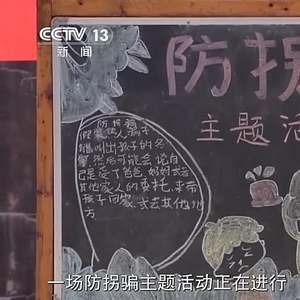 CCTV 13
新闻
防拐
主题活
防拐骗
假装熟人骗子
能叫出孩子的名
字，然后可能会说自
己是受了爸爸、妈妈或
其他家人的委托，来带
孩子回家，或去其他地
方
一场防拐骗主题活动正在进行